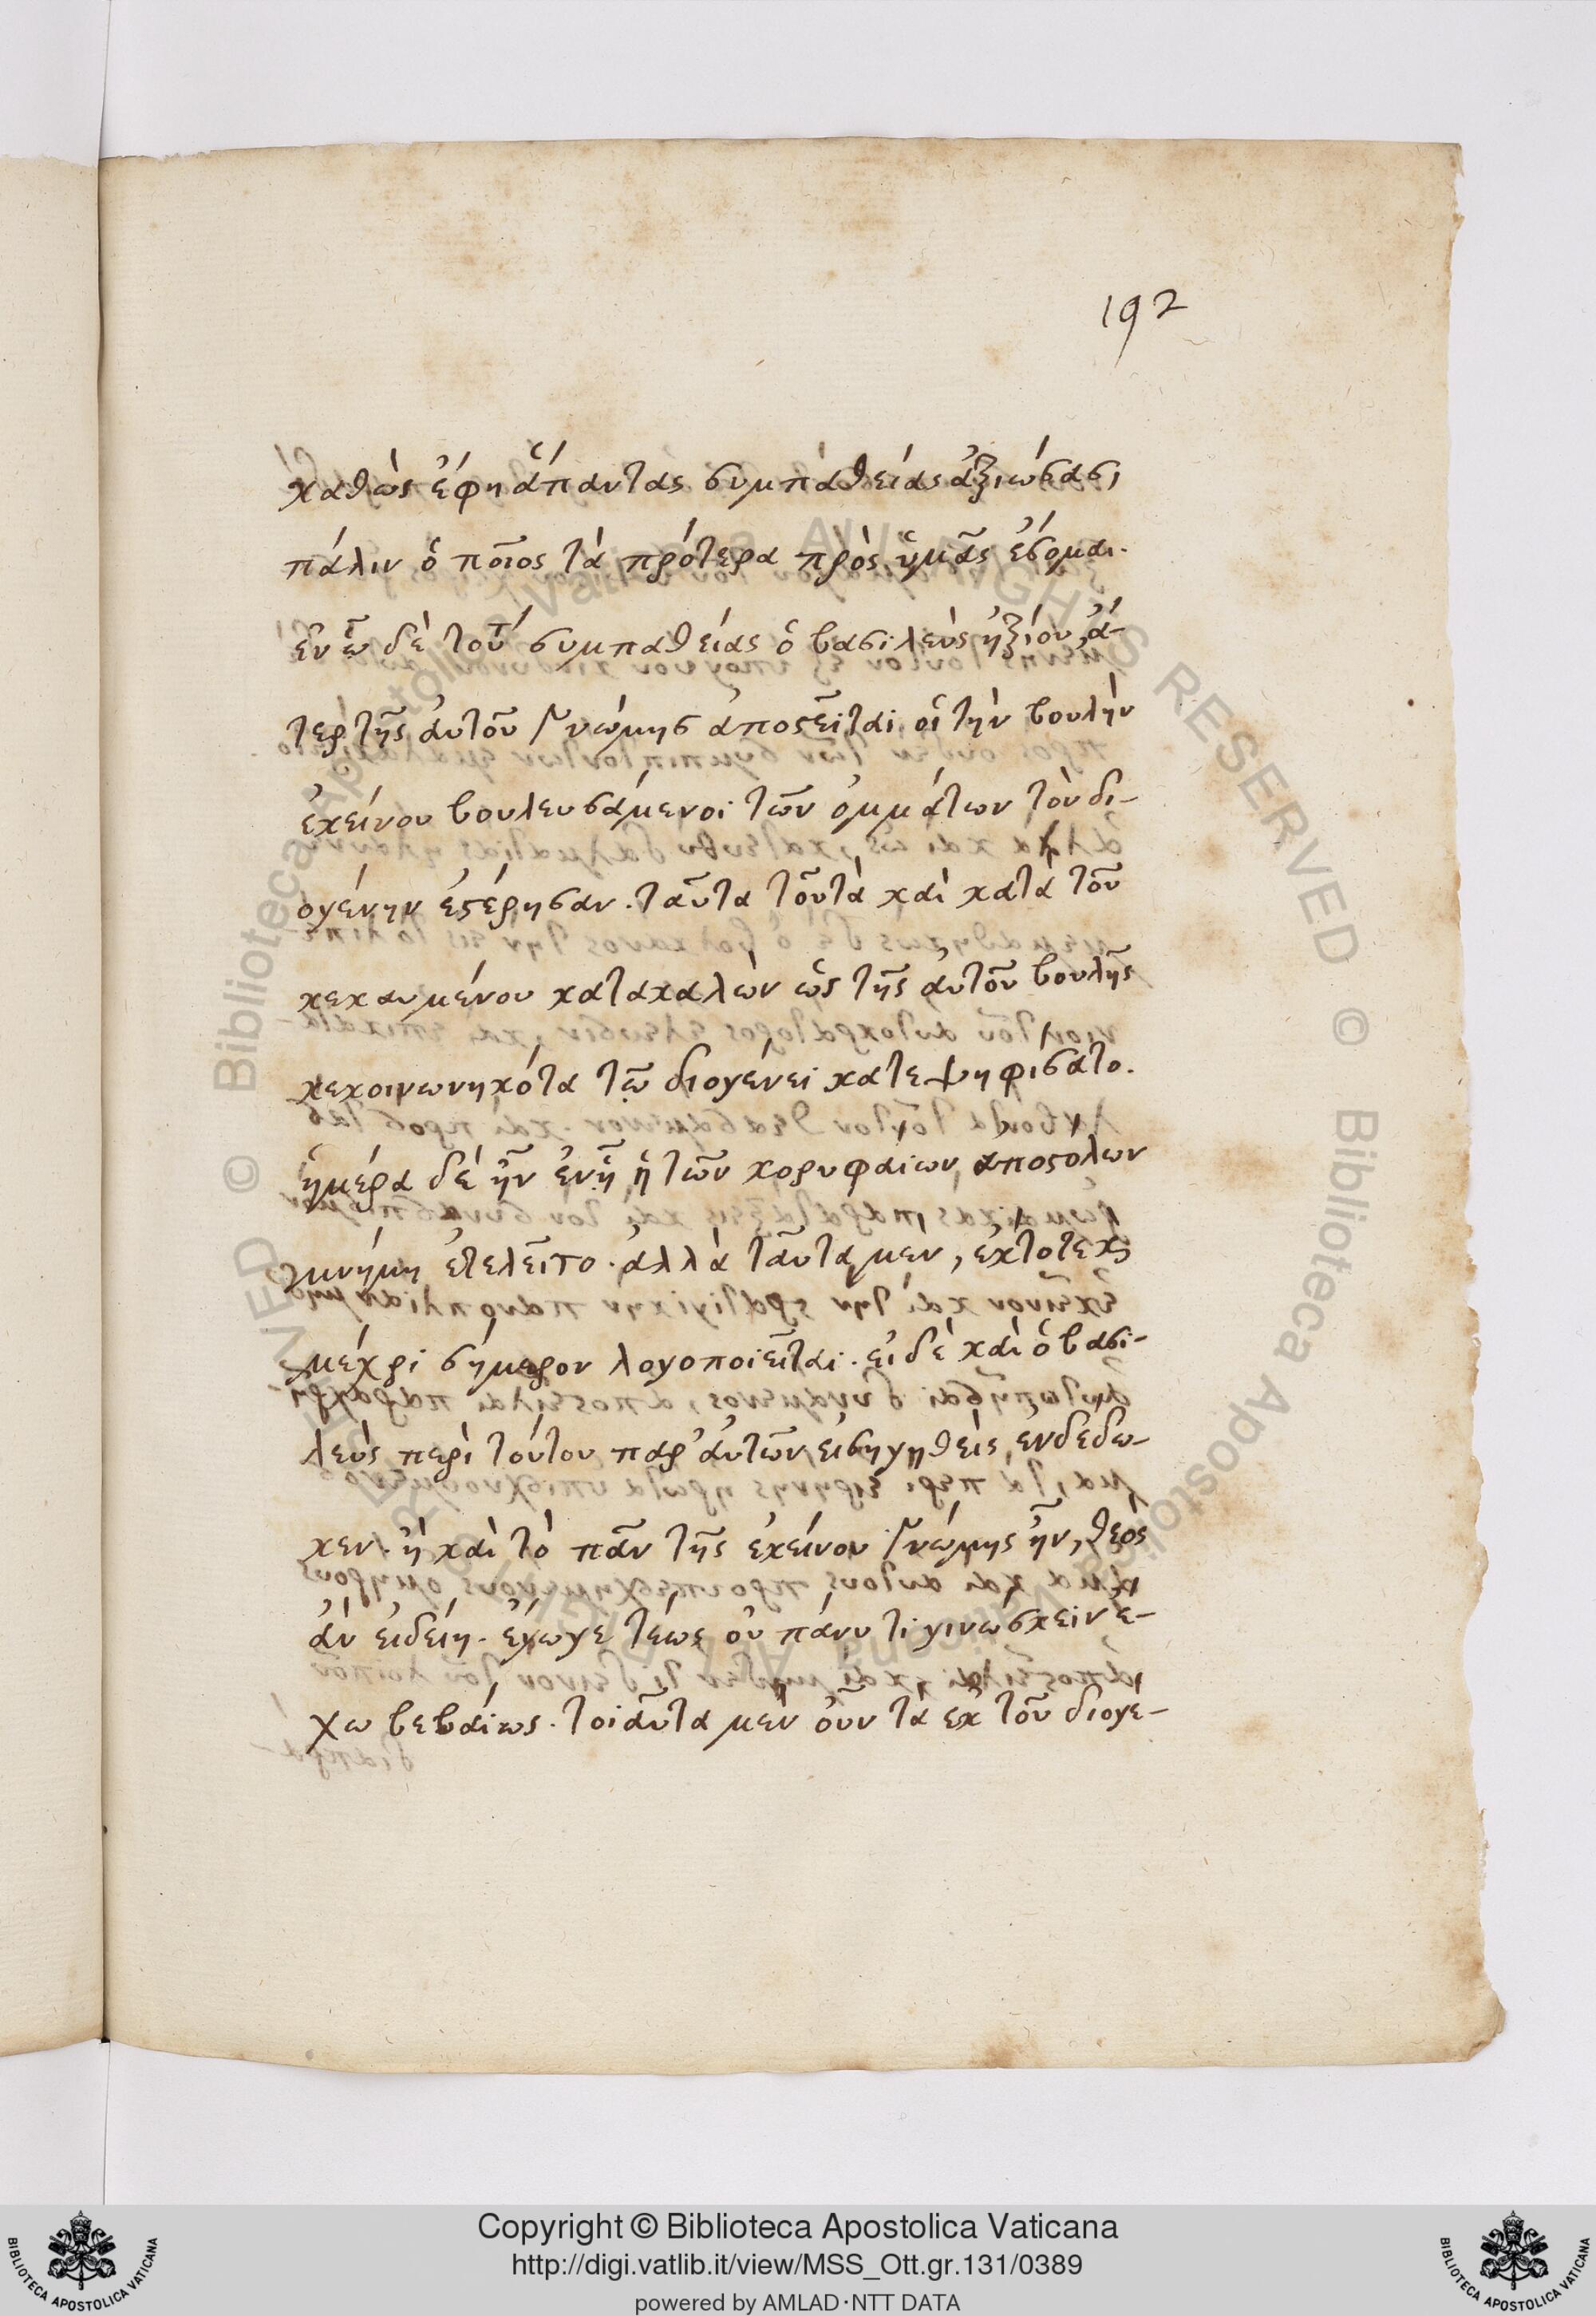 192
καθὼς ἔφη ἅπαντας συμπαθείας ἀξιώσασι
πάλιν ὁ ποῖος τὰ πρότερα πρὸς ὑμᾶς ἔσομαι.
ἐν ᾧ δὲ τοῦτ συμπαθείας ὁ βασιλεὺς ἠξίου, ἅ-
τερ τῆς ἀυτοῦ γνώμης ἀποστεῖται οἱ τὴν βουλὴν
ἐκείνου βουλευσάμενοι τῶν ὀμμάτων τὸν δι-
ογένην ἐστέρησαν. ταῦτα τοῦτὰ καὶ κατὰ τοῦ
κεκαυμένου κατακαλὼν ὡς τῆς ἀυτοῦ βουλῆς
κεκοινωνηκότα τῷ διογένει κατεψηφισατο.
ἡμέρα δέ ἦν ἐν ᾗ ἡ τῶν κορυφαίων ἀποστολων
μνήμη ἐτελεῖτο. ἀλλὰ ταῦτα μὲν, ἔκτοτε κς
μέχρι σήμερον λογοποιεῖται. εἰ δὲ καὶ ὁ βασι-
λεὺς περὶ τούτου παρ' ἀυτῶν εἰσηγηθεὶς ἐνδεδω-
κεν. ἢ καὶ τὸ πᾶν τῆς ἐκείνου γνώμης ἦν, θεὸς
ἂν εἰδείη. ἔγωγε τέως οὐ πάνυ τι γινώσκειν ἔ-
χω βεβαίως. τοιαῦτα μὲν ὀυν τὰ ἐκ τοῦ διογε-
Copyright © Biblioteca Apostolica Vaticana
http://digi.vatlib.it/view/MSS_Ott.gr.131/0389
powered by AMLAD·NTT DATA